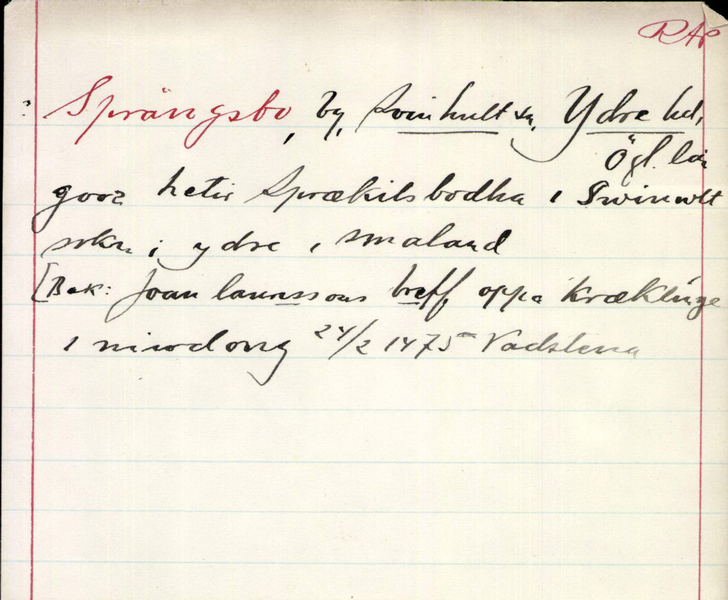 RAP
Sprängsbo, by, Svinhult sn, Ydre hd,
Ögl. län
gooz hetir Sprækilsbodha i Swinwlt
sokn i ydre i smaland
[Bak: Joan laurissons breff oppa Kræklinge
i niwdong 24/2 1475 Vadstena